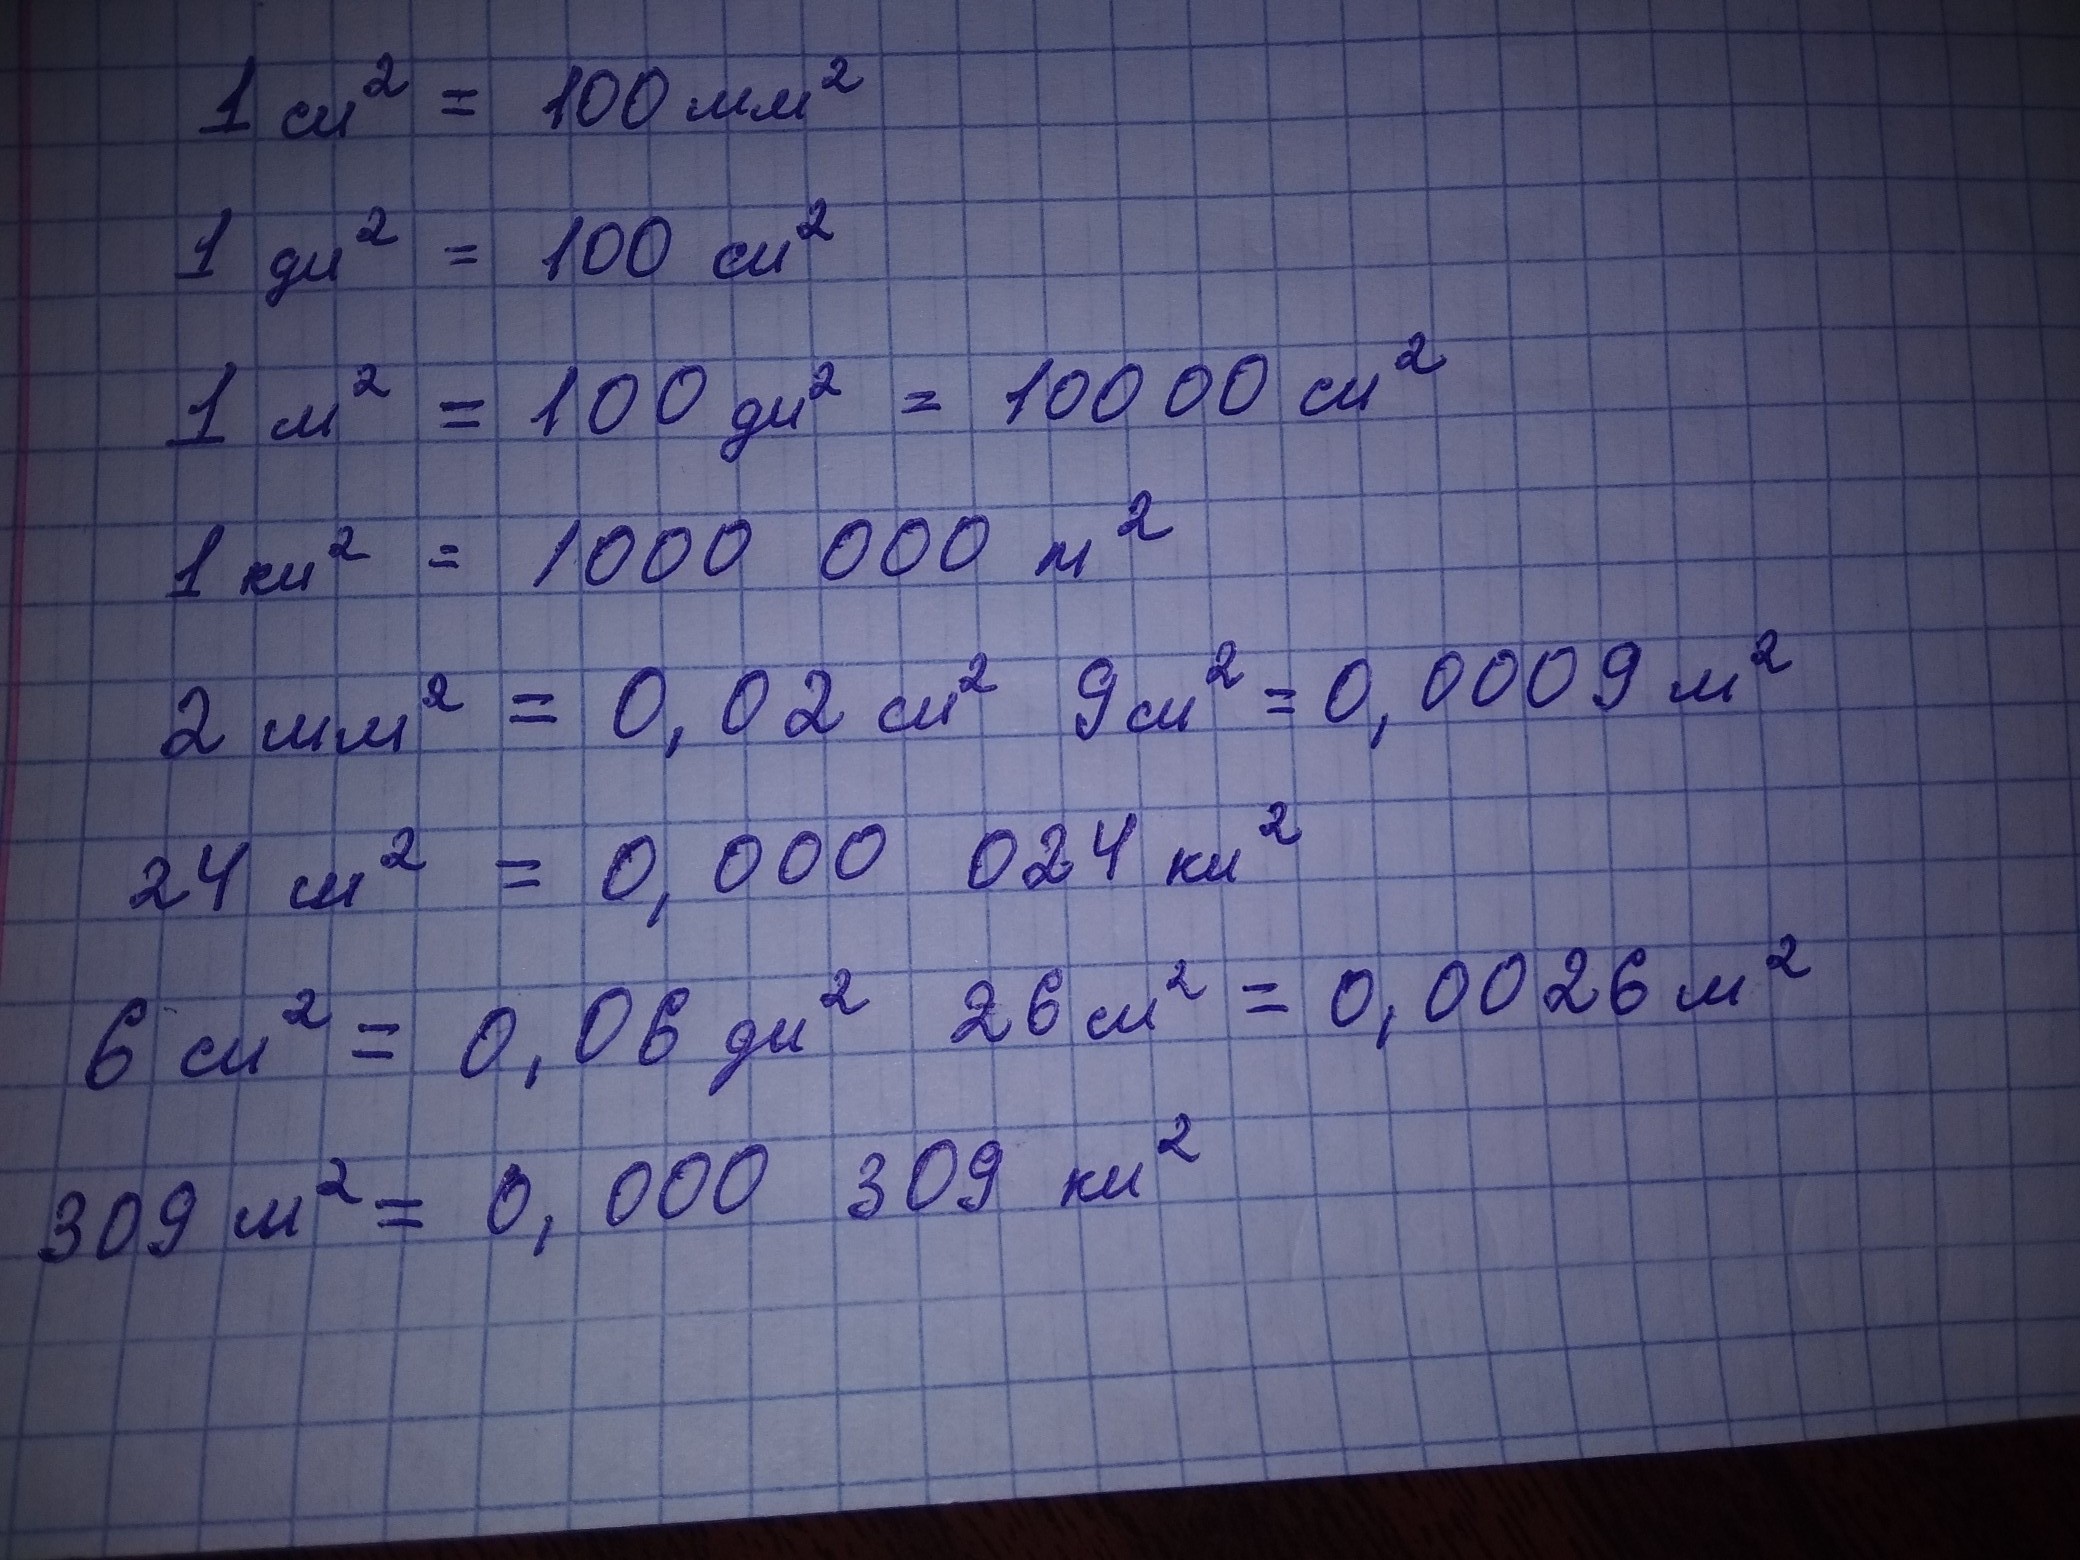 1 см² = 100 мм²
1 дм² = 100 см²
1 м² = 100 дм² = 10000 см²
1 км² = 1000 000 м²
2 мм² = 0,02 см² 9 см² = 0,0009 м²
24 м² = 0,000 024 км²
6 см² = 0,06 дм² 26 см² = 0,0026 м²
309 м² = 0,000 309 км²